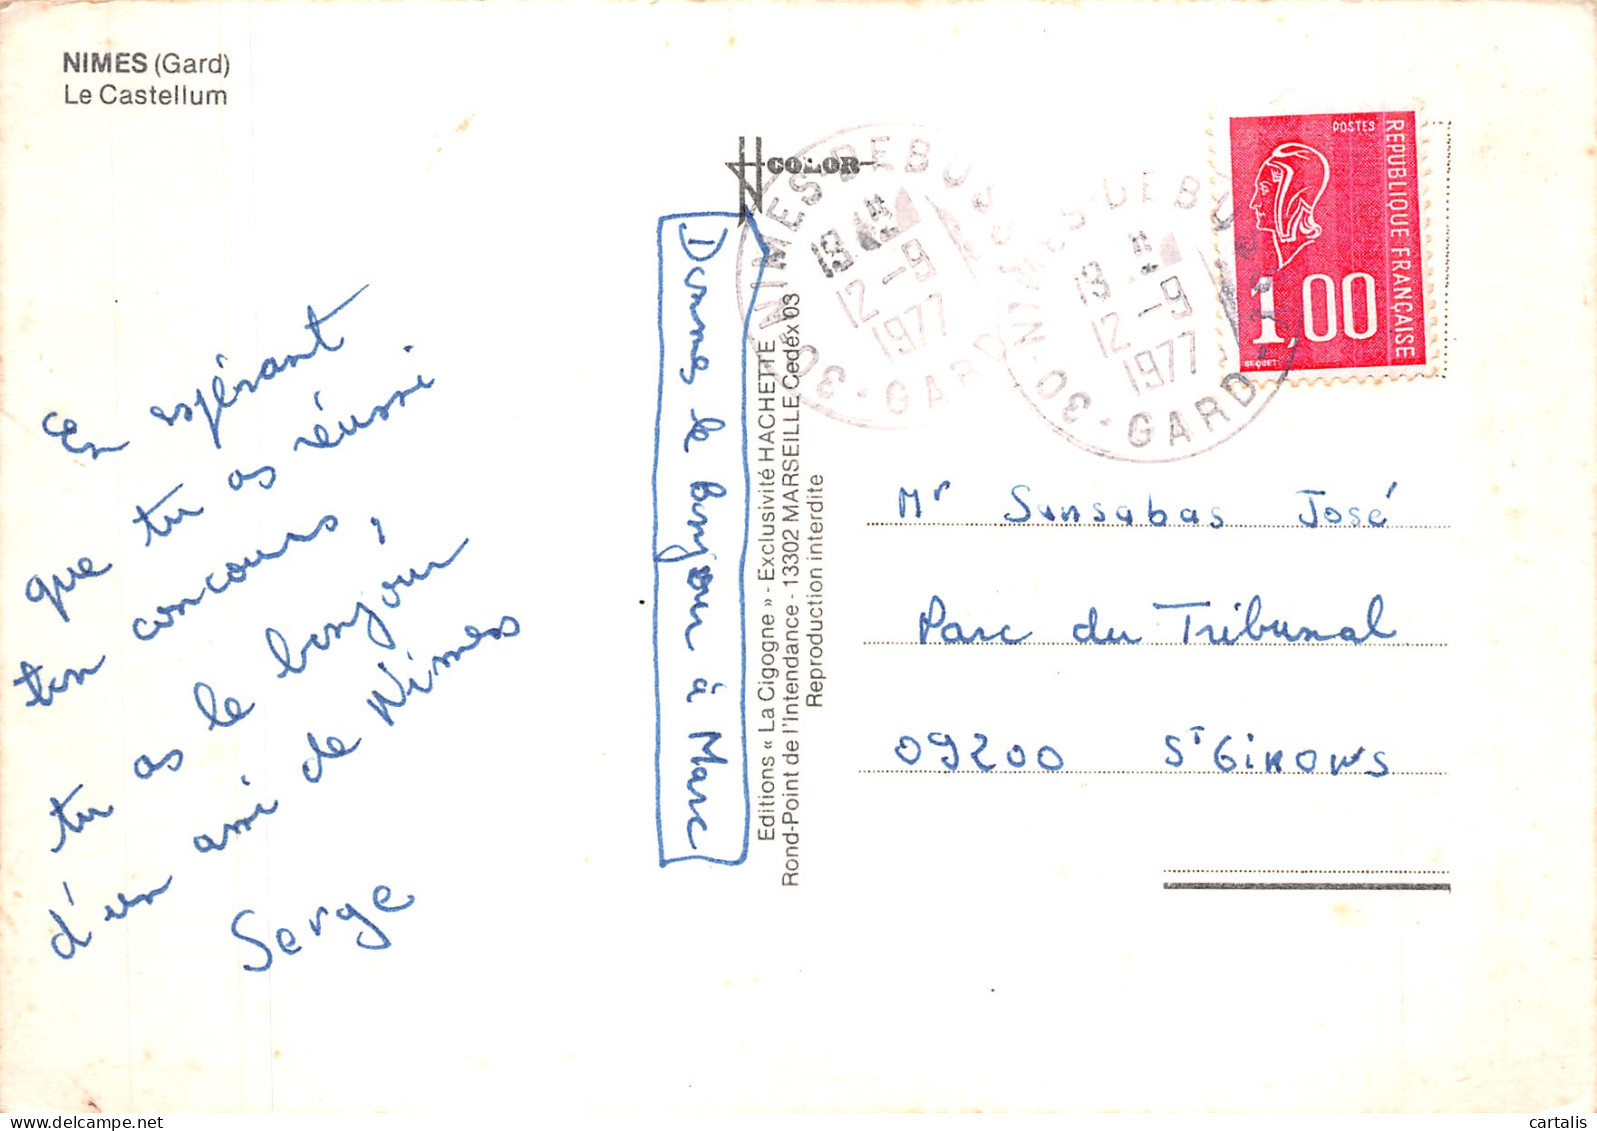 NIMES (Gard)
Le Castellum
En espérant
que tu as réussi
ton concours,
tu as le bonjour
d'un ami de Nîmes
Serge
Donnes le bonjour à Marc
COLOR
Editions « La Cigogne » - Exclusivité HACHETTE
Rond-Point de l'Intendance - 13302 MARSEILLE Cedex 03
Reproduction interdite
NIMES-DEBUSSY
19 H
12-9
1977
30-GARD
NIMES-DEBUSSY
19 H
12-9
1977
30-GARD
POSTES
REPUBLIQUE FRANÇAISE
1,00
BEQUET
Mr Sunsabas José
Parc du Tribunal
09200 St GIRONS
cartalis